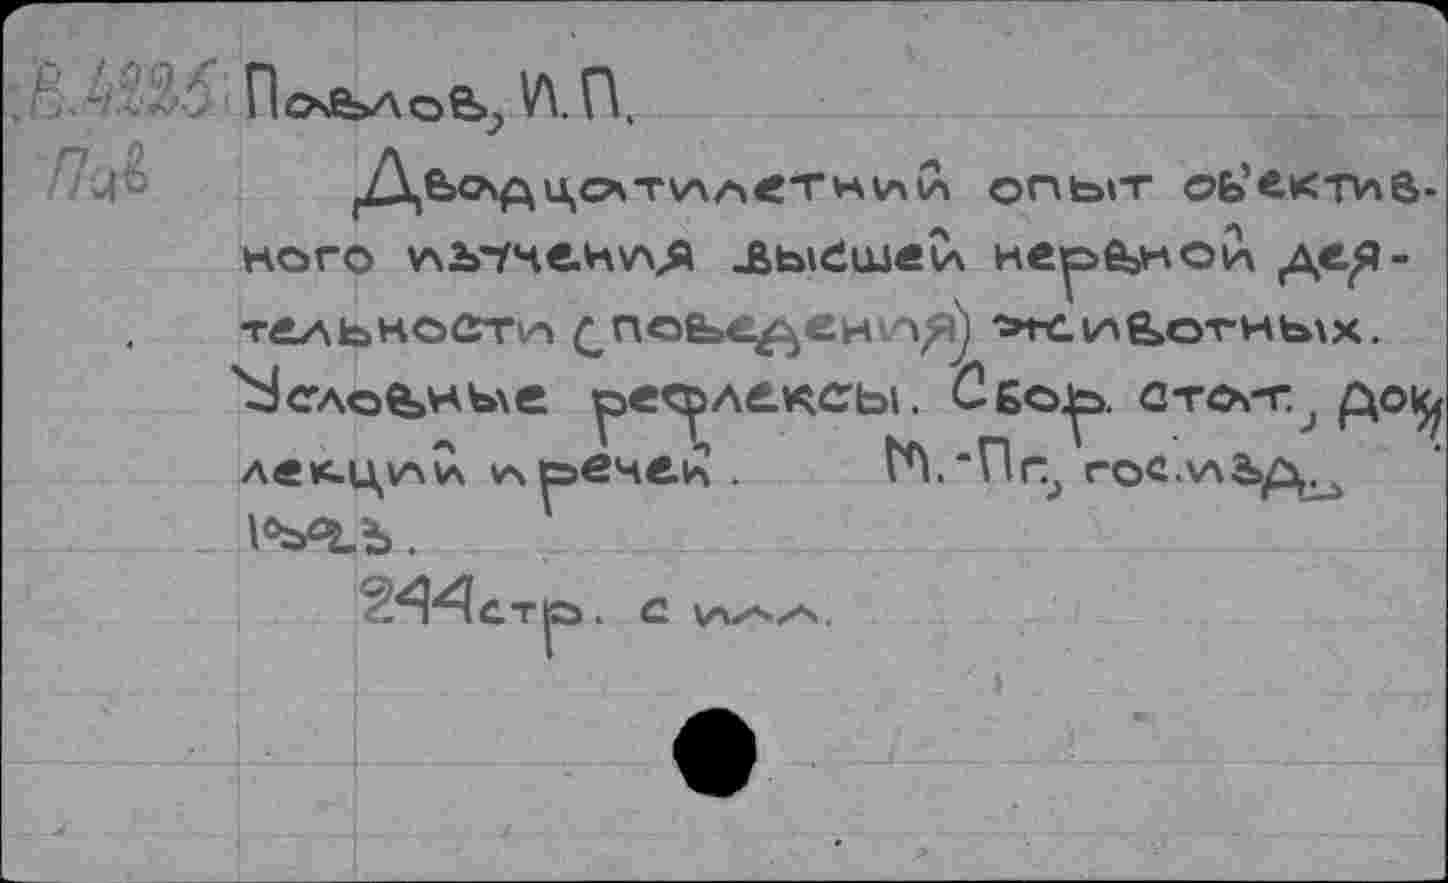 В.4225 Павлов, И.П.
Пав Двадцатилетний опыт об'ектив-
ного изучения высшей нервной дея-
тельности (поведения) животных.
Условные рефлексы. Сбор. стат., докл
лекций и речей. М.-Пг., гос.изд.,
1923.
244стр. с илл.